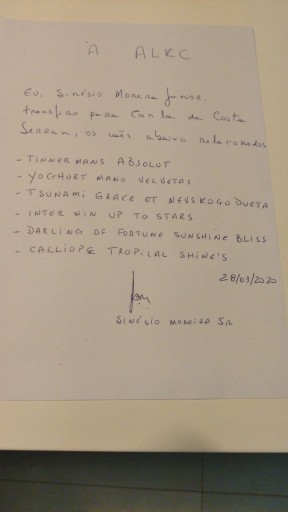 À ALRC
Eu, Sinésio Moreira Junior,
transfiro para Carla da Costa
Serran, os cães abaixo relacionados
- TINNERMANS ABSOLUT
- YOGHURT MANO VELVETAS
- TSUNAMI GRACE OT NEVSKOGO DUETA
- INTER WIN UP TO STARS
- DARLING OF FORTUNE SUNSHINE BLISS
- CALLIOPE TROPICAL SHINE'S
28/03/2020
SINÉSIO MOREIRA JR